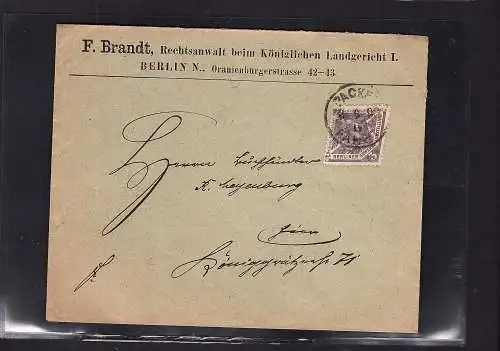 F. Brandt, Rechtsanwalt beim Königlichen Landgericht I.
BERLIN N., Oranienburgerstrasse 42–43.
PACKET
Herrn Buchhändler
K.
hier
Königgrätzerstr 71